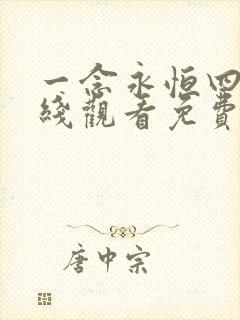 一念永恒四
线观看免费
唐中宗